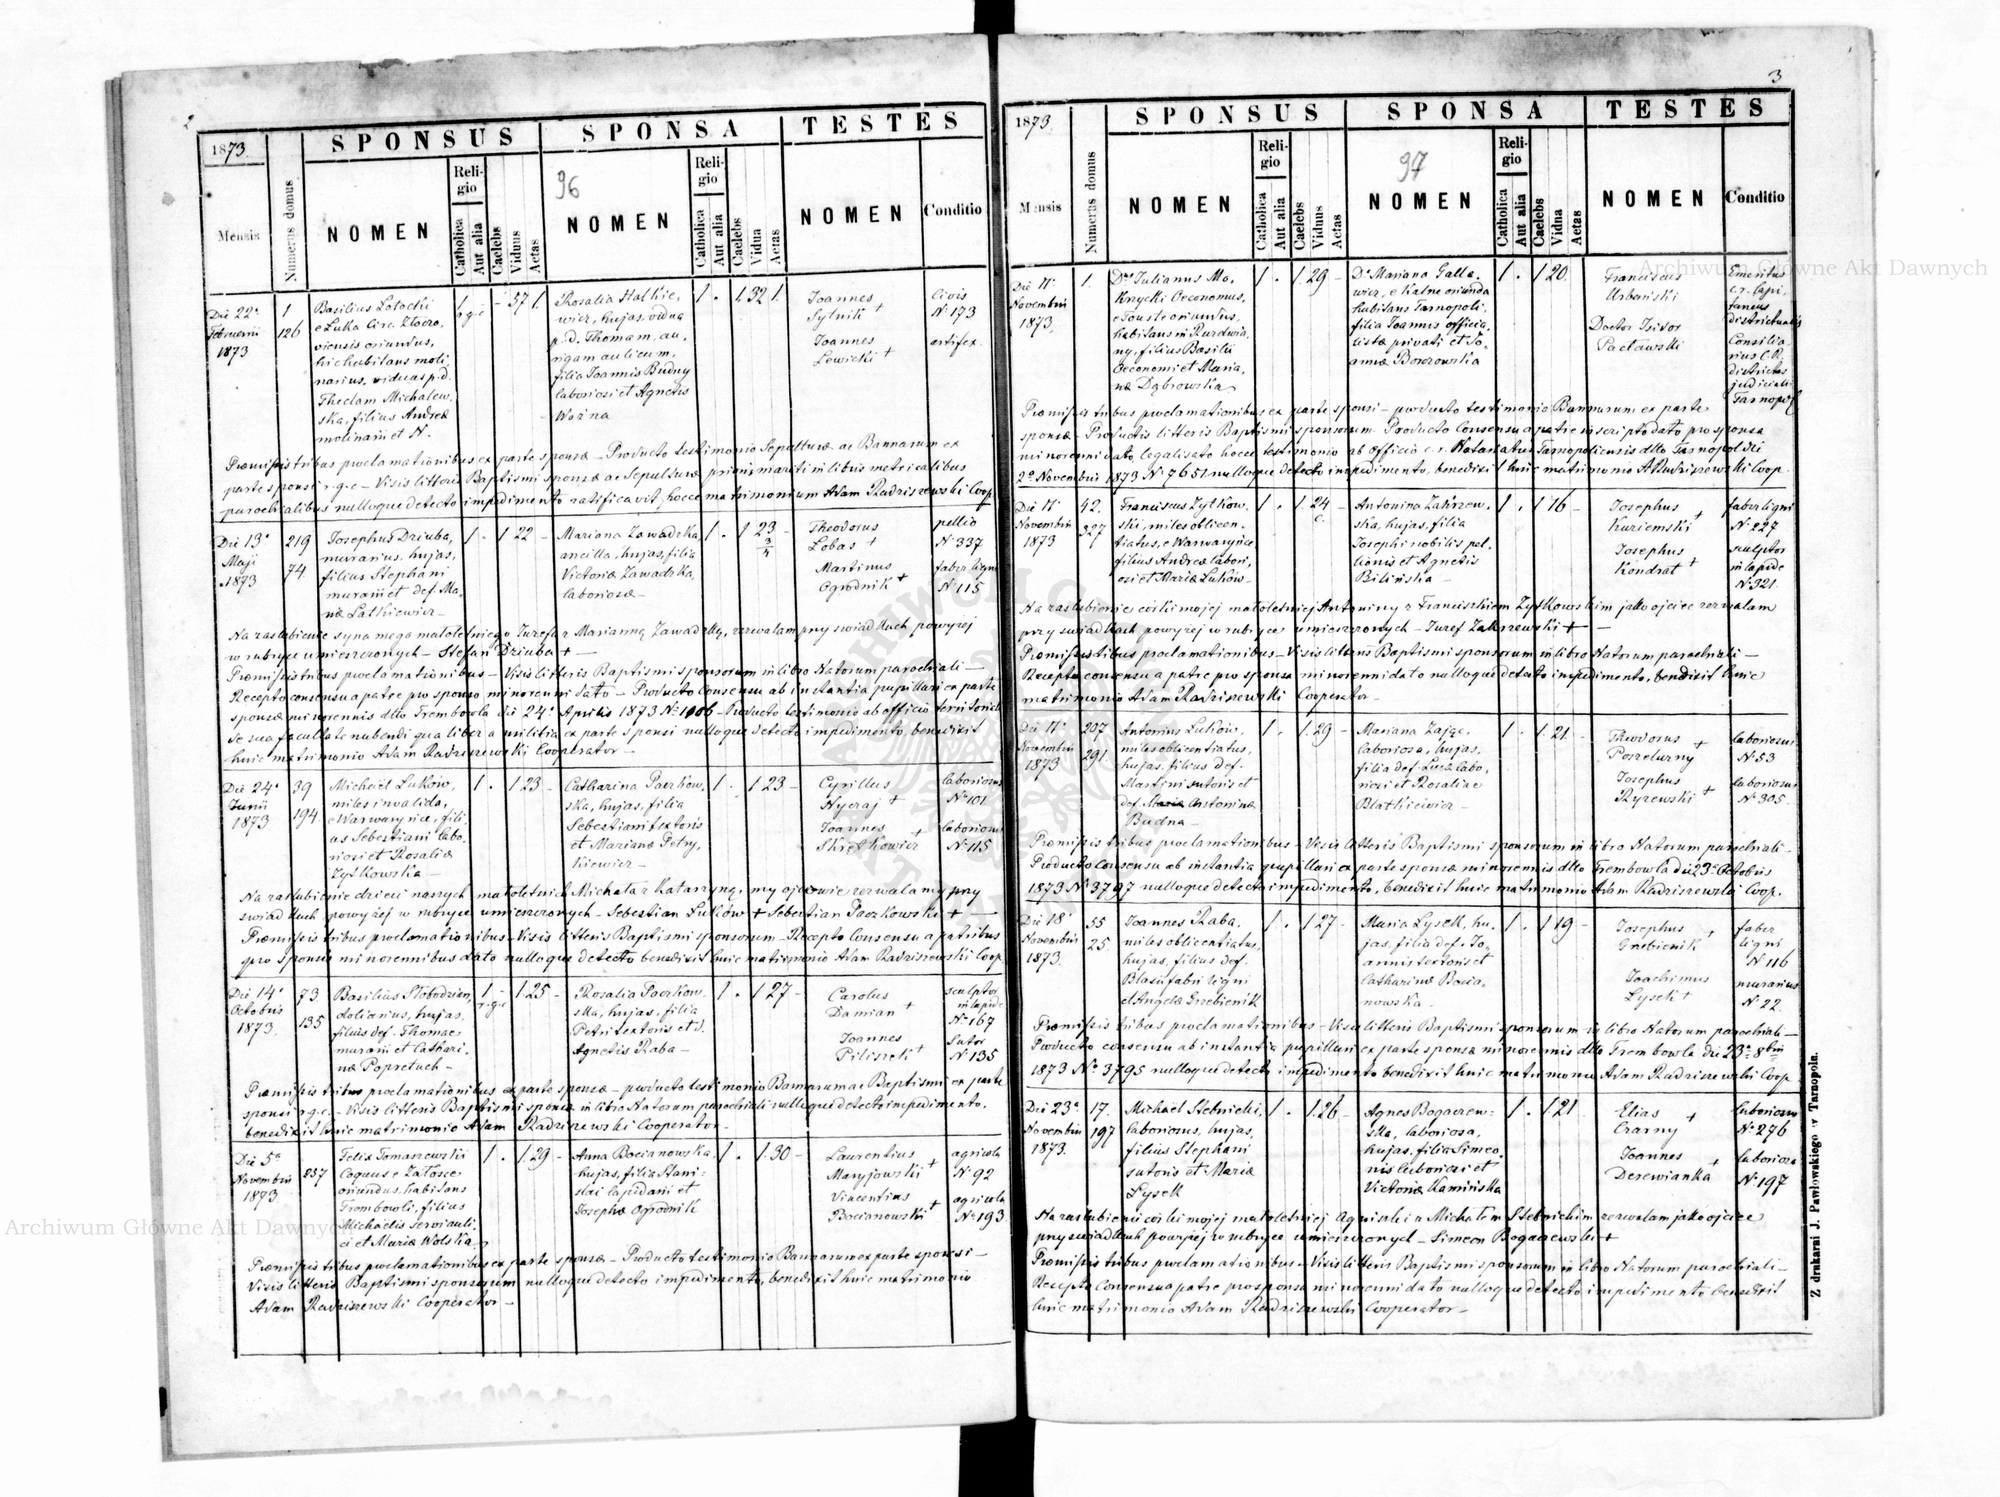 2
1873.
Mensis
Numerus domus
SPONSUS
NOMEN
Religio
Catholica
Aut alia
Caelebs
Viduus
Aetas
SPONSA
96
NOMEN
Religio
Catholica
Aut alia
Caelebs
Vidua
Aetas
TESTES
NOMEN
Conditio
Die 22a
Februarii
1873
1
126
Basilius Lotocki
e Luka Circ. Złoczo,
viensis oriundus,
hic habitans moli,
narius, viduus p.d.
Theclam Michalew,
ska, filius Andreæ
molinarii et N.
r.g.c
57
Rosalia Halkie,
wicz, hujas, vidua
p.d. Thomam, au,
rigam aulicum,
filia Joannis Budny
laboriosi et Agnetis
Woźna
1 . 1 32 1.
Joannes
Sytnik +
Joannes
Lewicki +
Civis
No 173
artifex.
Præmissis tribus proclamationibus ex parte sponsæ – Producto testimonio Sepulturæ ac Bannorum ex
parte sponsi r.g.c – Visis litteris Baptismi sponsæ ac Sepulturæ prioris mariti in libris metricalibus
parochialibus nulloque detecto impedimento ratificavit hocce matrimonium Adam Radziszewski Coop
Die 13a
Maji
1873
219
74
Josephus Dziuba,
murarius, hujas,
filius Stephani
murarii et def. Ma,
riæ Latkiewicz –
1 . 1 22
Mariana Zawadzka,
ancilla, hujas, filia
Victoriæ Zawadzka,
laboriosæ –
1 . 1 23 –
3/4
Theodorus
Lobas +
Martinus
Ogrodnik +
pellio
No 337
faber ligni
No 115
Na zaślubienie syna mego małoletniego Józefa z Marianną Zawadzką, zezwalam przy świadkach powyżej
w rubryce umieszczonych – Stefan Dziuba + –
Præmissis tribus proclamationibus – Visis litteris Baptismi sponsorum in libro Natorum parochiali –
Recepto consensu a patre pro sponso minorenni dato – Producto Consensu ab instantia pupillari ex parte
sponsæ minorennis ddto Trembowla die 24a Aprilis 1873 No 1006 – Producto testimonio ab officio territoriali
de sua facultate nubendi qua liber a militia ex parte sponsi nulloque detecto impedimento, benedixit
huic matrimonio Adam Radziszewski Cooperator –
Die 24a
Junii
1873
39
194
Michael Luków,
miles invalida,
e Warwaryńce, fili,
us Sebestiani labo,
riosi et Rosaliæ
Żytkowska –
1 . 1 23 –
Catharina Paczkow,
ska, hujas, filia
Sebestiani textoris
et Marianæ Petry,
kiewicz –
1 . 1 23 –
Cyrillus
Hyczaj +
Joannes
Skrętkowicz +
laboriosus
No 101
laboriosus
No 115
Na zaślubienie dzieci naszych małoletnich Michała z Katarzyną, my ojcowie zezwalamy przy
świadkach powyżej w rubryce umieszczonych – Sebestian Luków + Sebestian Paczkowski + –
Præmissis tribus proclamationibus – Visis litteris Baptismi sponsorum – Recepto Consensu a patribus
pro sponsis minorennibus dato nulloque detecto benedixit huic matrimonio Adam Radziszewski Coop
Die 14a
Octobris
1873.
73.
135
Basilius Słobodzian,
doliarius, hujas,
filius def. Thomæ
murarii et Cathari,
næ Popretuch –
r.g.c 1 25 –
Rosalia Paczkow,
ska, hujas, filia
Petri textoris et
Agnetis Raba –
1 . 1 27 –
Carolus
Damian +
Joannes
Piliszek +
sculptor
in lapide
No 167
Sutor
No 135
Præmissis tribus proclamationibus ex parte sponsæ – producto testimonio Bannorum ac Baptismi ex parte
sponsi r.g.c. – Visis litteris Baptismi sponsæ in libro Natorum parochiali nulloque detecto impedimento,
benedixit huic matrimonio Adam Radziszewski Cooperator –
Die 5a
Novembris
1873
237
Felix Tomaszewski
Coquus e Załosce
oriundus, habitans
Trembowli, filius
Michaelis servi auli,
ci et Mariæ Wolska.
1 . 1 29 –
Anna Bocianowska,
hujas, filia Stani,
slai lapidarii et
Josephæ Ogrodnik
1 . 1 30 –
Laurentius
Maryjowski +
Vincentius
Bocianowski +
agricola
No 92
agricola
No 193
Præmissis tribus proclamationibus ex parte sponsæ – Producto testimonio Bannorum ex parte sponsi –
Visis litteris Baptismi sponsorum nulloque detecto impedimento, benedixit huic matrimonio
Adam Radziszewski Cooperator –
3
1873.
Mensis
Numerus domus
SPONSUS
NOMEN
Religio
Catholica
Aut alia
Caelebs
Viduus
Aetas
SPONSA
97
NOMEN
Religio
Catholica
Aut alia
Caelebs
Vidua
Aetas
TESTES
NOMEN
Conditio
Die 11a
Novembris
1873,
1.
Dnus Julianus Mo,
krzycki Oeconomus,
e Touste oriundus,
habitans in Burdwia,
ny, filius Basilii
Oeconomi et Maria,
næ Dąbrowska
1 . 1 29 –
Da Mariana Galle,
wicz, e Kalne oriunda
habitans Tarnopoli,
filia Joannis officia,
listæ privati et Jo,
annæ Borzowska
1 . 1 20.
Franciscus
Urbański
Doctor Isidor
Pacławski
Emeritus
c.r. Capi,
taneus
districtualis
Consilia,
rius C.R.
districtus
judicialis
Tarnopol
Præmissis tribus proclamationibus ex parte sponsi – producto testimonio Bannorum ex parte
sponsæ – Productis litteris Baptismi sponsorum. Producto Consensu a patre in scripto dato pro sponsa
minorenni dato, legalisato hocce testimonio ab Officio c.r. Notariatus Tarnopoliensis ddto Tarnopol die
2a Novembris 1873 No 7651 nulloque detecto impedimento, benedixit huic matrimonio A Radziszewski Coop
Die 11a
Novembris
1873
42.
327
Franciscus Żytkow,
ski, miles oblicen,
tiatus, e Warwaryńce
filius Andreæ labori,
osi et Mariæ Luków –
1 . 1 24
Antonina Zakrzew,
ska, hujas, filia
Josephi nobilis pel,
lionis et Agnetis
Bilińska –
1 . 1 16 –
Josephus
Kuziemski +
Josephus
Kondrat +
faber ligni
No 227
sculptor
in lapide
No 321.
Na zaślubienie córki mojej małoletniej Antoniny z Franciszkiem Żytkowskim jako ojciec zezwalam
przy świadkach powyżej w rubryce umieszczonych – Józef Zakrzewski + –
Præmissis tribus proclamationibus – Visis litteris Baptismi sponsorum in libro Natorum parochiali –
Recepto consensu a patre pro sponsa minorenni dato nulloque detecto impedimento, benedixit huic
matrimonio Adam Radziszewski Cooperator –
Die 11a
Novembris
1873
207
291
Antonius Luków,
miles oblicentiatus,
hujas, filius def.
Martini sutoris et
def. Antoninæ
Budna –
1 . 1 29 –
Mariana Zając,
laboriosa, hujas,
filia def. Lucæ labo,
riosi et Rosaliæ
Blatkiewicz –
1 . 1 21. –
Theodorus
Poszelużny +
Josephus
Ryzewski +
laboriosus
No 53
laboriosus
No 305.
Præmissis tribus proclamationibus – Visis litteris Baptismi sponsorum in libro Natorum parochiali –
Producto Consensu ab instantia pupillari ex parte sponsæ minorennis ddto Trembowla die 23a Octobris
1873 No 3797 nulloque detecto impedimento, benedixit huic matrimonio Adam Radziszewski Coop.
Die 18a
Novembris
1873.
55
25.
Joannes Raba,
miles oblicentiatus,
hujas, filius def.
Blasii fabri ligni
et Angelæ Grzebienik
1 . 1 27 –
Maria Łysek, hu,
jas, filia def. Jo,
annis textoris et
Catharinæ Bocia,
nowska –
1 . 1 19 –
Josephus
Grzebienik +
Joachimus
Łysek +
faber
ligni
No 116
murarius
No 22.
Præmissis tribus proclamationibus – Visis litteris Baptismi sponsorum in libro Natorum parochiali –
Producto consensu ab instantia pupillari ex parte sponsæ minorennis ddto Trembowla die 23a 8bris
1873 No 3795 nulloque detecto impedimento benedixit huic matrimonio Adam Radziszewski Coop
Die 23a
Novembris
1873.
17.
197
Michael Stebnicki,
laboriosus, hujas,
filius Stephani
sutoris et Mariæ
Łysek
1 . 1 26 –
Agnes Bogaczew,
ska, laboriosa,
hujas, filia Simeo,
nis laboriosi et
Victoriæ Kamińska
1 . 1 21
Elias
Czarny +
Joannes
Derewianka +
laboriosus
No 276
laboriosus
No 197
Na zaślubienie córki mojej małoletniej Agnieszki z Michałem Stebnickim zezwalam jako ojciec
przy świadkach powyżej w rubryce umieszczonych – Simeon Bogaczewski +
Præmissis tribus proclamationibus – Visis litteris Baptismi sponsorum in libro Natorum parochiali –
Recepto Consensu a patre pro sponsa minorenni dato nulloque detecto impedimento benedixit
huic matrimonio Adam Radziszewski Cooperator –
Z drukarni J. Pawłowskiego w Tarnopolu.
Archiwum Główne Akt Dawnych
Archiwum Główne Akt Dawnych